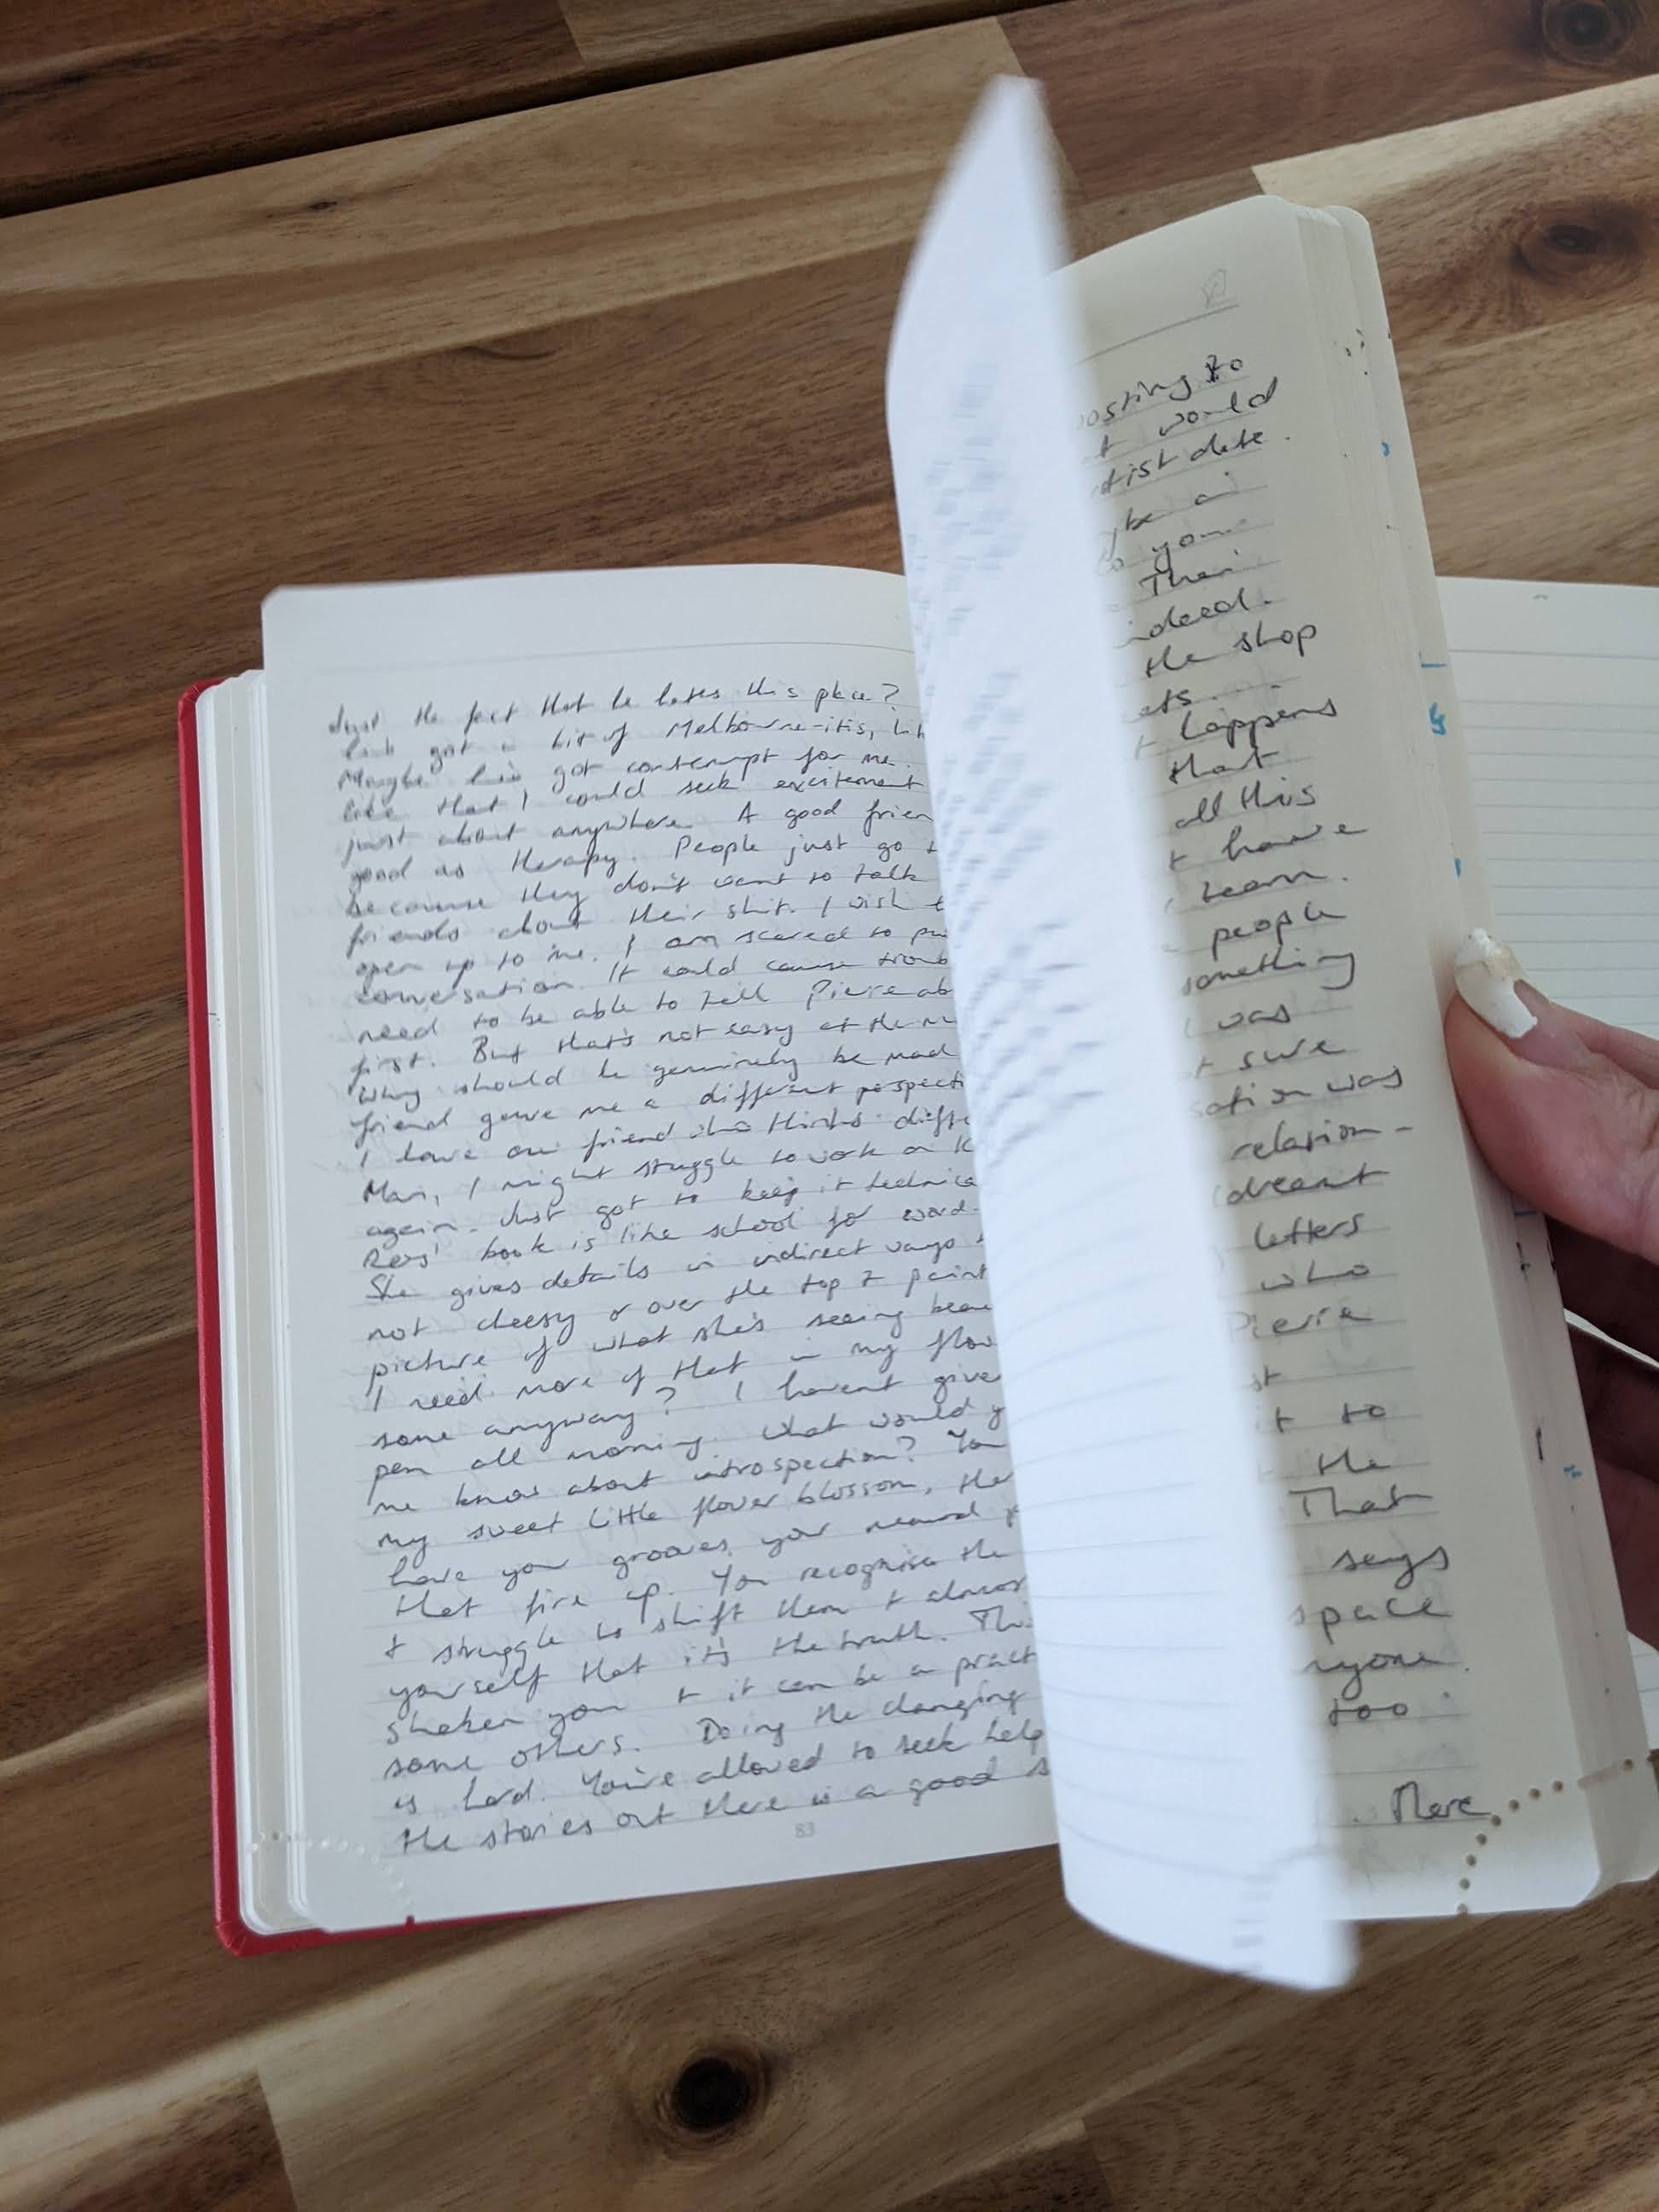 Just the fact that he hates this place?
got a bit of Melbourne-itis, lik
Maybe he's got contempt for me.
like that I could seek excitement
just about anywhere. A good frien
good as therapy. People just go t
because they don't want to talk
friends about their shit. I wish t
open up to me. I am scared to pu
conversation. It could cause troub
need to be able to tell Pierre ab
first. But that's not easy at the m
Why should he genuinely be mad
friend gave me a different perspecti
I have one friend who thinks diffe
Man, I might struggle to work on K
again. Just got to keep it technica
book is like school for word-
She gives details in indirect ways
not cheesy or over the top & paint
picture of what she's seeing beau
I need more of that in my flow
some anyway? I haven't give
pen all morning. What would y
me know about introspection? You
my sweet little flower blossom, the
have your grooves, your neural p
that fire up. You recognise the
& struggle to shift them & almos
yourself that it's the truth. Thi
shaken you & it can be a pract
some others. Doing the changing
is hard. You're allowed to seek help
the stories out there is a good s
83
osting to
t would
tist date.
be a
you
indeed.
the shop
ets.
t happens
that
all this
t have
learn.
people
something
I was
t sure
sation was
relation-
dreamt
letters
who
Pierre
st
it to
the
That
says
space
nyone.
too
There